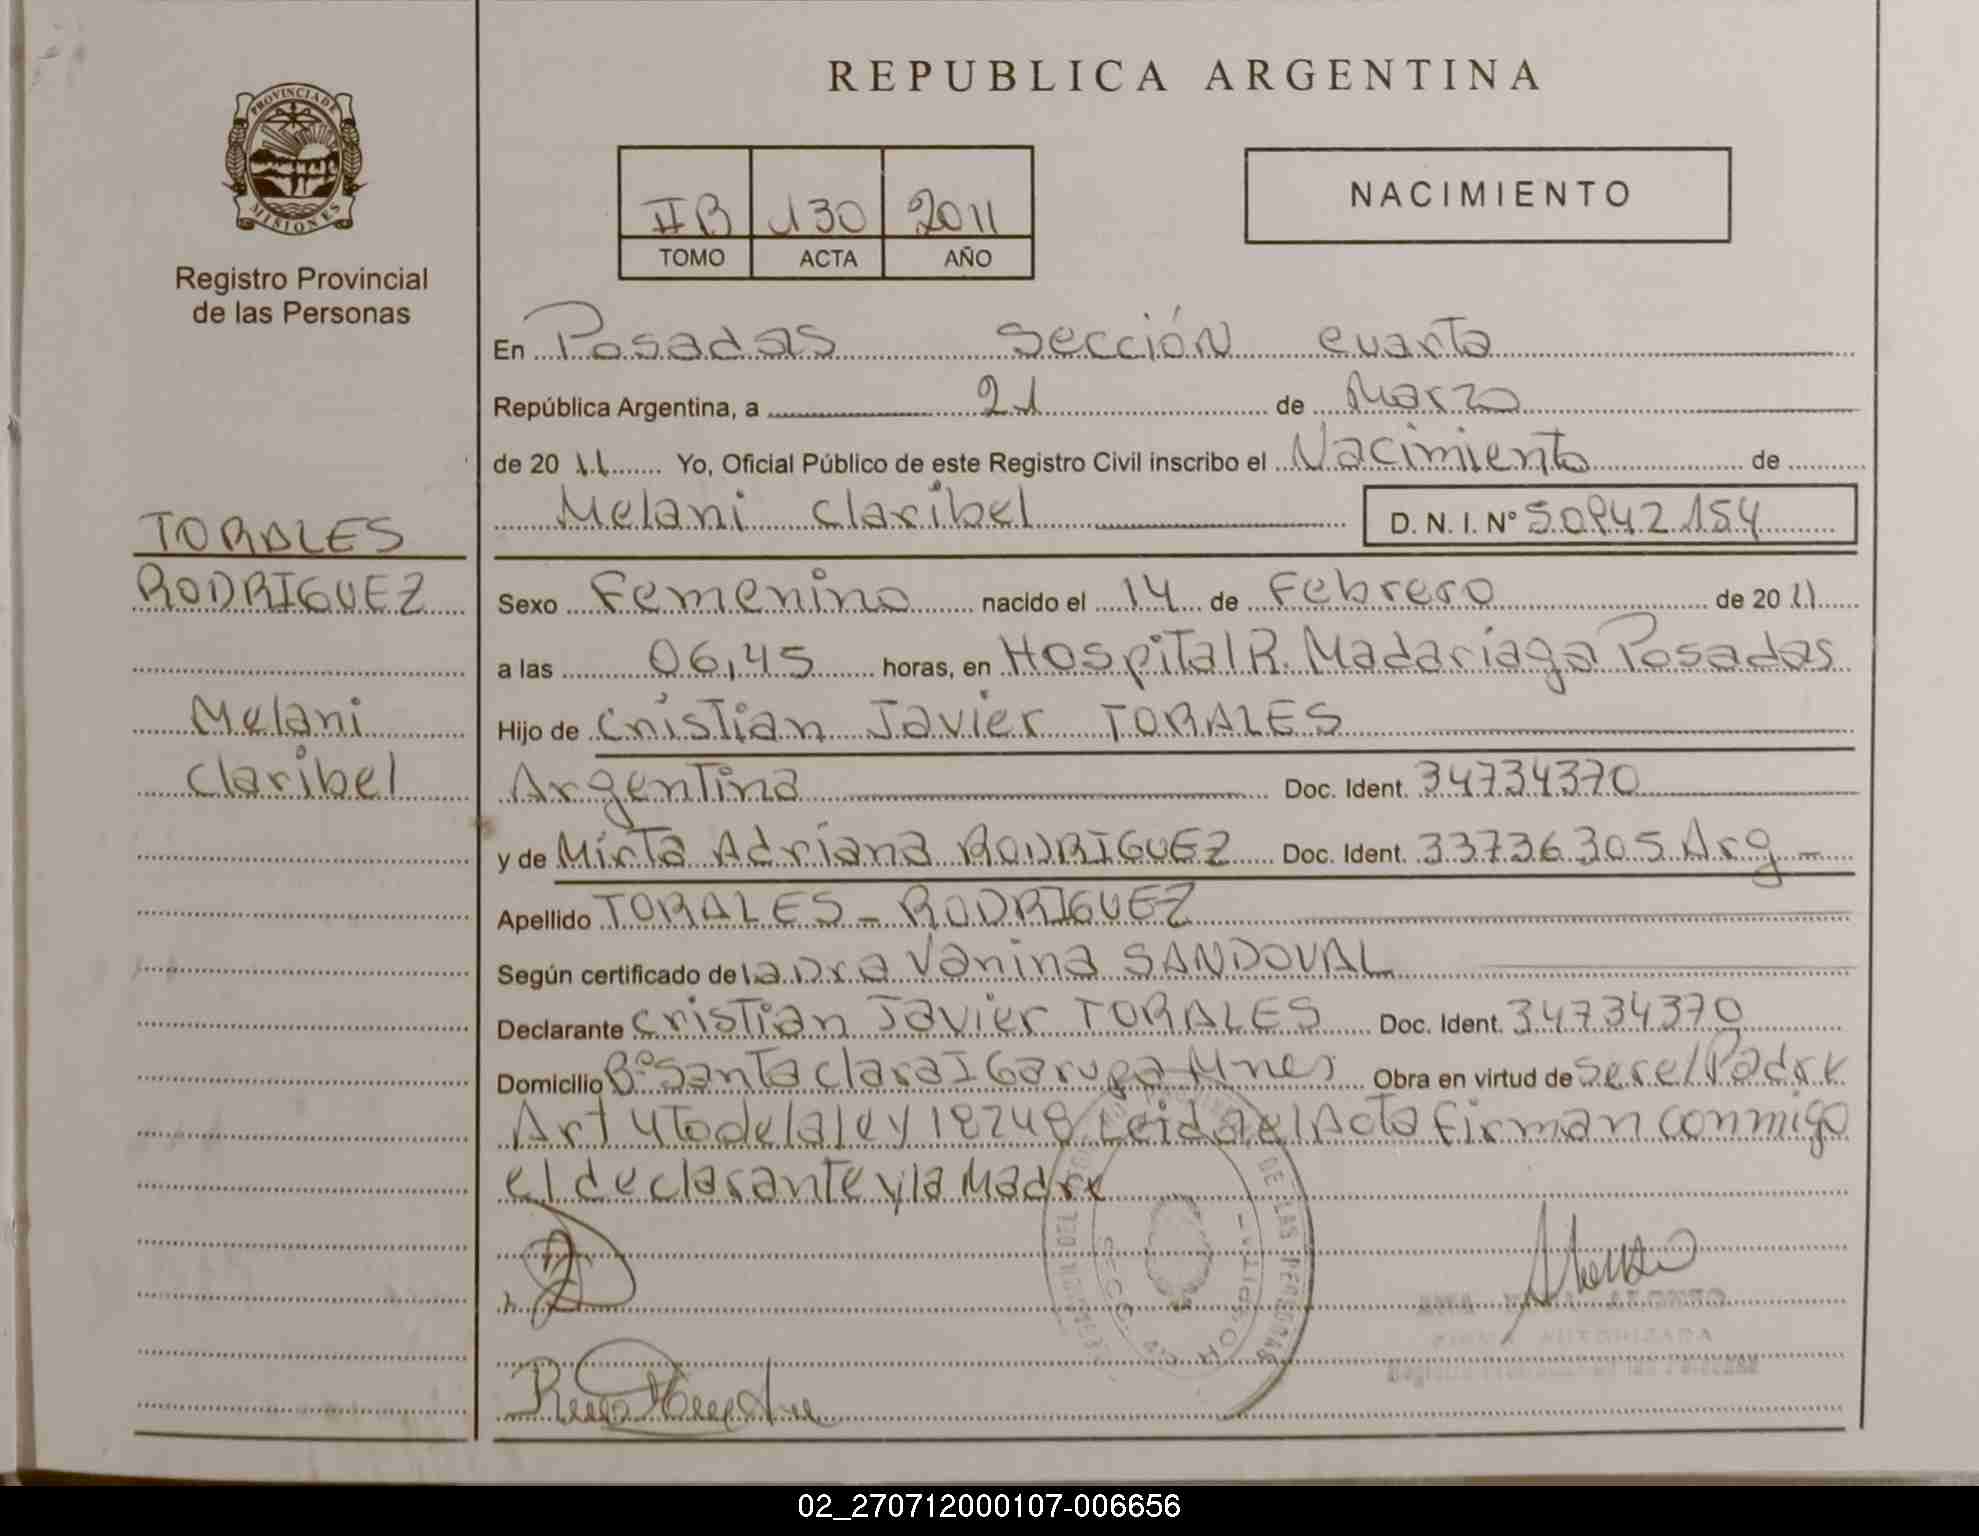 REPUBLICA ARGENTINA
PROVINCIA DE
MISIONES
Registro Provincial
de las Personas
II B 130 2011
TOMO ACTA AÑO
NACIMIENTO
En Posadas Sección cuarta
República Argentina, a 21 de Marzo
de 20 11 Yo, Oficial Público de este Registro Civil inscribo el Nacimiento de
Melani Claribel D. N. I. Nº 50942154
TORALES
RODRIGUEZ
Melani
Claribel
Sexo Femenino nacido el 14 de Febrero de 20 11
a las 06,45 horas, en Hospital R. Madariaga Posadas
Hijo de Cristian Javier TORALES
Argentina Doc. Ident. 34734370
y de Mirta Adriana RODRIGUEZ Doc. Ident. 33736305 Arg -
Apellido TORALES - RODRIGUEZ
Según certificado de la Dra Vanina SANDOVAL
Declarante Cristian Javier TORALES Doc. Ident. 34734370
Domicilio Bº Santa Clara I Garupa Mnes Obra en virtud de ser el Padre
Art 4to de la ley 18248 Leida el Acta firman conmigo
el declarante y la Madre
DE LAS PERSONAS
FIRMA AUTORIZADA
02_270712000107-006656